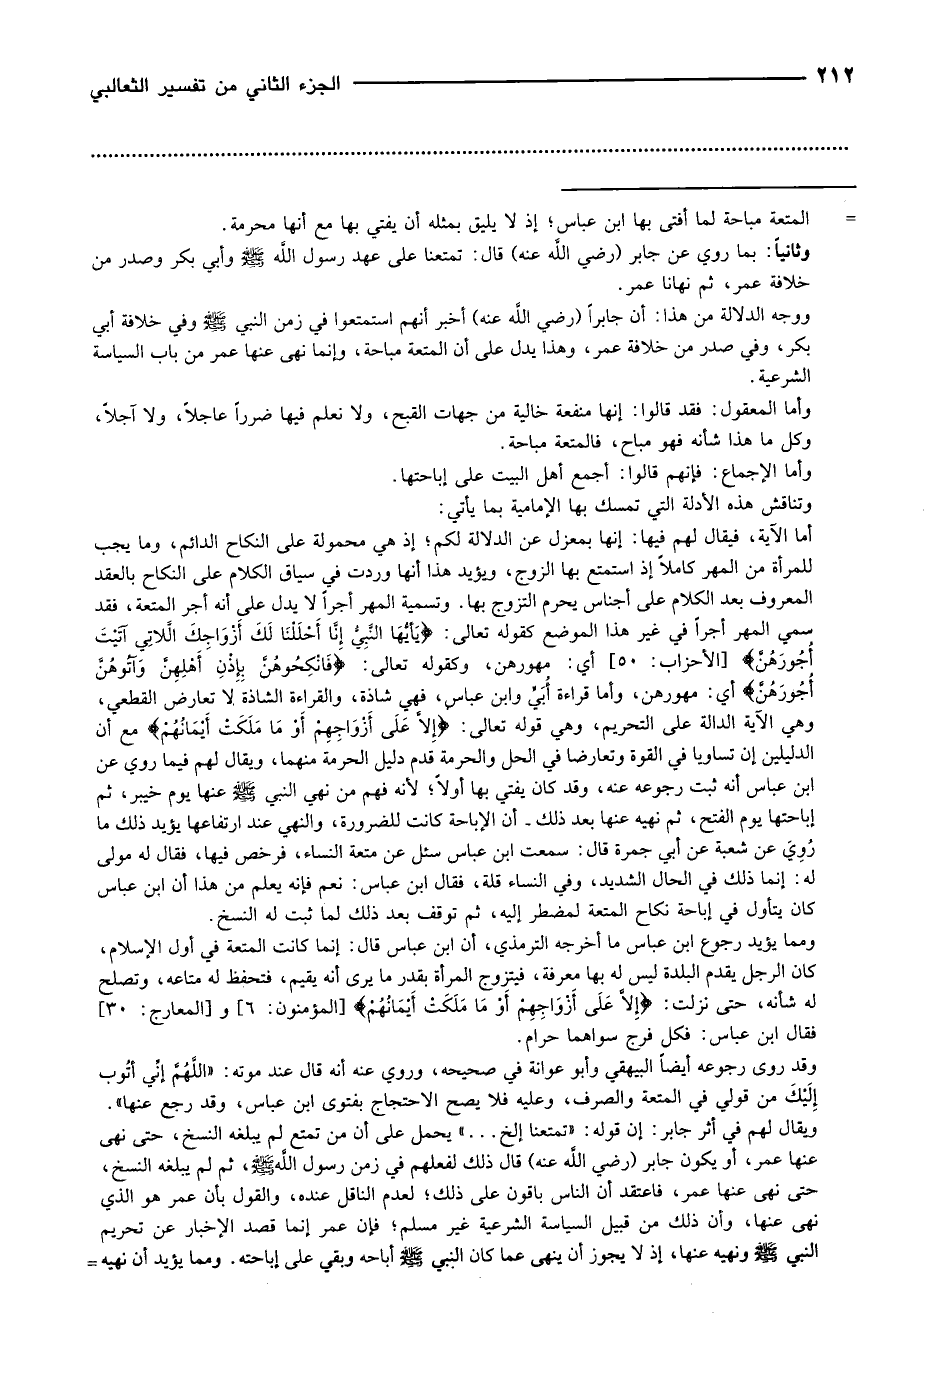 ٢١٢
الجزء الثاني من تفسير الثعالبي
= المتعة مباحة لما أفتى بها ابن عباس؛ إذ لا يليق بمثله أن يفتي بها مع أنها محرمة.
وثانياً: بما روي عن جابر (رضي اللَّه عنه) قال: تمتعنا على عهد رسول اللَّه ﷺ وأبي بكر وصدر من
خلافة عمر، ثم نهانا عمر.
ووجه الدلالة من هذا: أن جابراً (رضي اللَّه عنه) أخبر أنهم استمتعوا في زمن النبي ﷺ وفي خلافة أبي
بكر، وفي صدر من خلافة عمر، وهذا يدل على أن المتعة مباحة، وإنما نهى عنها عمر من باب السياسة
الشرعية.
وأما المعقول: فقد قالوا: إنها منفعة خالية من جهات القبح، ولا نعلم فيها ضرراً عاجلاً، ولا آجلاً،
وكل ما هذا شأنه فهو مباح، فالمتعة مباحة.
وأما الإجماع: فإنهم قالوا: أجمع أهل البيت على إباحتها.
وتناقش هذه الأدلة التي تمسك بها الإمامية بما يأتي:
أما الآية، فيقال لهم فيها: إنها بمعزل عن الدلالة لكم؛ إذ هي محمولة على النكاح الدائم، وما يجب
للمرأة من المهر كاملاً إذ استمتع بها الزوج، ويؤيد هذا أنها وردت في سياق الكلام على النكاح بالعقد
المعروف بعد الكلام على أجناس يحرم التزوج بها. وتسمية المهر أجراً لا يدل على أنه أجر المتعة، فقد
سمي المهر أجراً في غير هذا الموضع كقوله تعالى: ﴿يَأَيُّهَا النَّبِيُّ إِنَّا أَحْلَلْنَا لَكَ أَزْوَاجِكَ الَّلاتِي آتَيْتَ
أُجُورَهُنَّ﴾ [الأحزاب: ٥٠] أي: مهورهن، وكقوله تعالى: ﴿فَانْكِحُوهُنَّ بِإِذْنِ أَهْلِهِنَّ وَآتُوهُنَّ
أُجُورَهُنَّ﴾ أي: مهورهن، وأما قراءة أُبَيْ وابن عباس، فهي شاذة، والقراءة الشاذة لا تعارض القطعي،
وهي الآية الدالة على التحريم، وهي قوله تعالى: ﴿إِلاَّ عَلَى أَزْوَاجِهِمْ أَوْ مَا مَلَكَتْ أَيْمَانُهُمْ﴾ مع أن
الدليلين إن تساويا في القوة وتعارضا في الحل والحرمة قدم دليل الحرمة منهما، ويقال لهم فيما روي عن
ابن عباس أنه ثبت رجوعه عنه، وقد كان يفتي بها أولاً؛ لأنه فهم من نهي النبي ﷺ عنها يوم خيبر، ثم
إباحتها يوم الفتح، ثم نهيه عنها بعد ذلك ـ أن الإباحة كانت للضرورة، والنهي عند ارتفاعها يؤيد ذلك ما
رُوِيَ عن شعبة عن أبي جمرة قال: سمعت ابن عباس سئل عن متعة النساء، فرخص فيها، فقال له مولى
له: إنما ذلك في الحال الشديد، وفي النساء قلة، فقال ابن عباس: نعم فإنه يعلم من هذا أن ابن عباس
كان يتأول في إباحة نكاح المتعة لمضطر إليه، ثم توقف بعد ذلك لما ثبت له النسخ.
ومما يؤيد رجوع ابن عباس ما أخرجه الترمذي، أن ابن عباس قال: إنما كانت المتعة في أول الإسلام،
كان الرجل يقدم البلدة ليس له بها معرفة، فيتزوج المرأة بقدر ما يرى أنه يقيم، فتحفظ له متاعه، وتصلح
له شأنه، حتى نزلت: ﴿إِلاَّ عَلَى أَزْوَاجِهِمْ أَوْ مَا مَلَكَتْ أَيْمَانُهُمْ﴾ [المؤمنون: ٦] و [المعارج: ٣٠]
فقال ابن عباس: فكل فرج سواهما حرام.
وقد روى رجوعه أيضاً البيهقي وأبو عوانة في صحيحه، وروي عنه أنه قال عند موته: «اللَّهُمَّ إِنِّي أتُوب
إِلَيْكَ من قولي في المتعة والصرف، وعليه فلا يصح الاحتجاج بفتوى ابن عباس، وقد رجع عنها».
ويقال لهم في أثر جابر: إن قوله: «تمتعنا إلخ...» يحمل على أن من تمتع لم يبلغه النسخ، حتى نهى
عنها عمر، أو يكون جابر (رضي اللَّه عنه) قال ذلك لفعلهم في زمن رسول اللَّهﷺ، ثم لم يبلغه النسخ،
حتى نهى عنها عمر، فاعتقد أن الناس باقون على ذلك؛ لعدم الناقل عنده، والقول بأن عمر هو الذي
نهى عنها، وأن ذلك من قبيل السياسة الشرعية غير مسلم؛ فإن عمر إنما قصد الإخبار عن تحريم
النبي ﷺ ونهيه عنها، إذ لا يجوز أن ينهى عما كان النبي ﷺ أباحه وبقي على إباحته. ومما يؤيد أن نهيه =